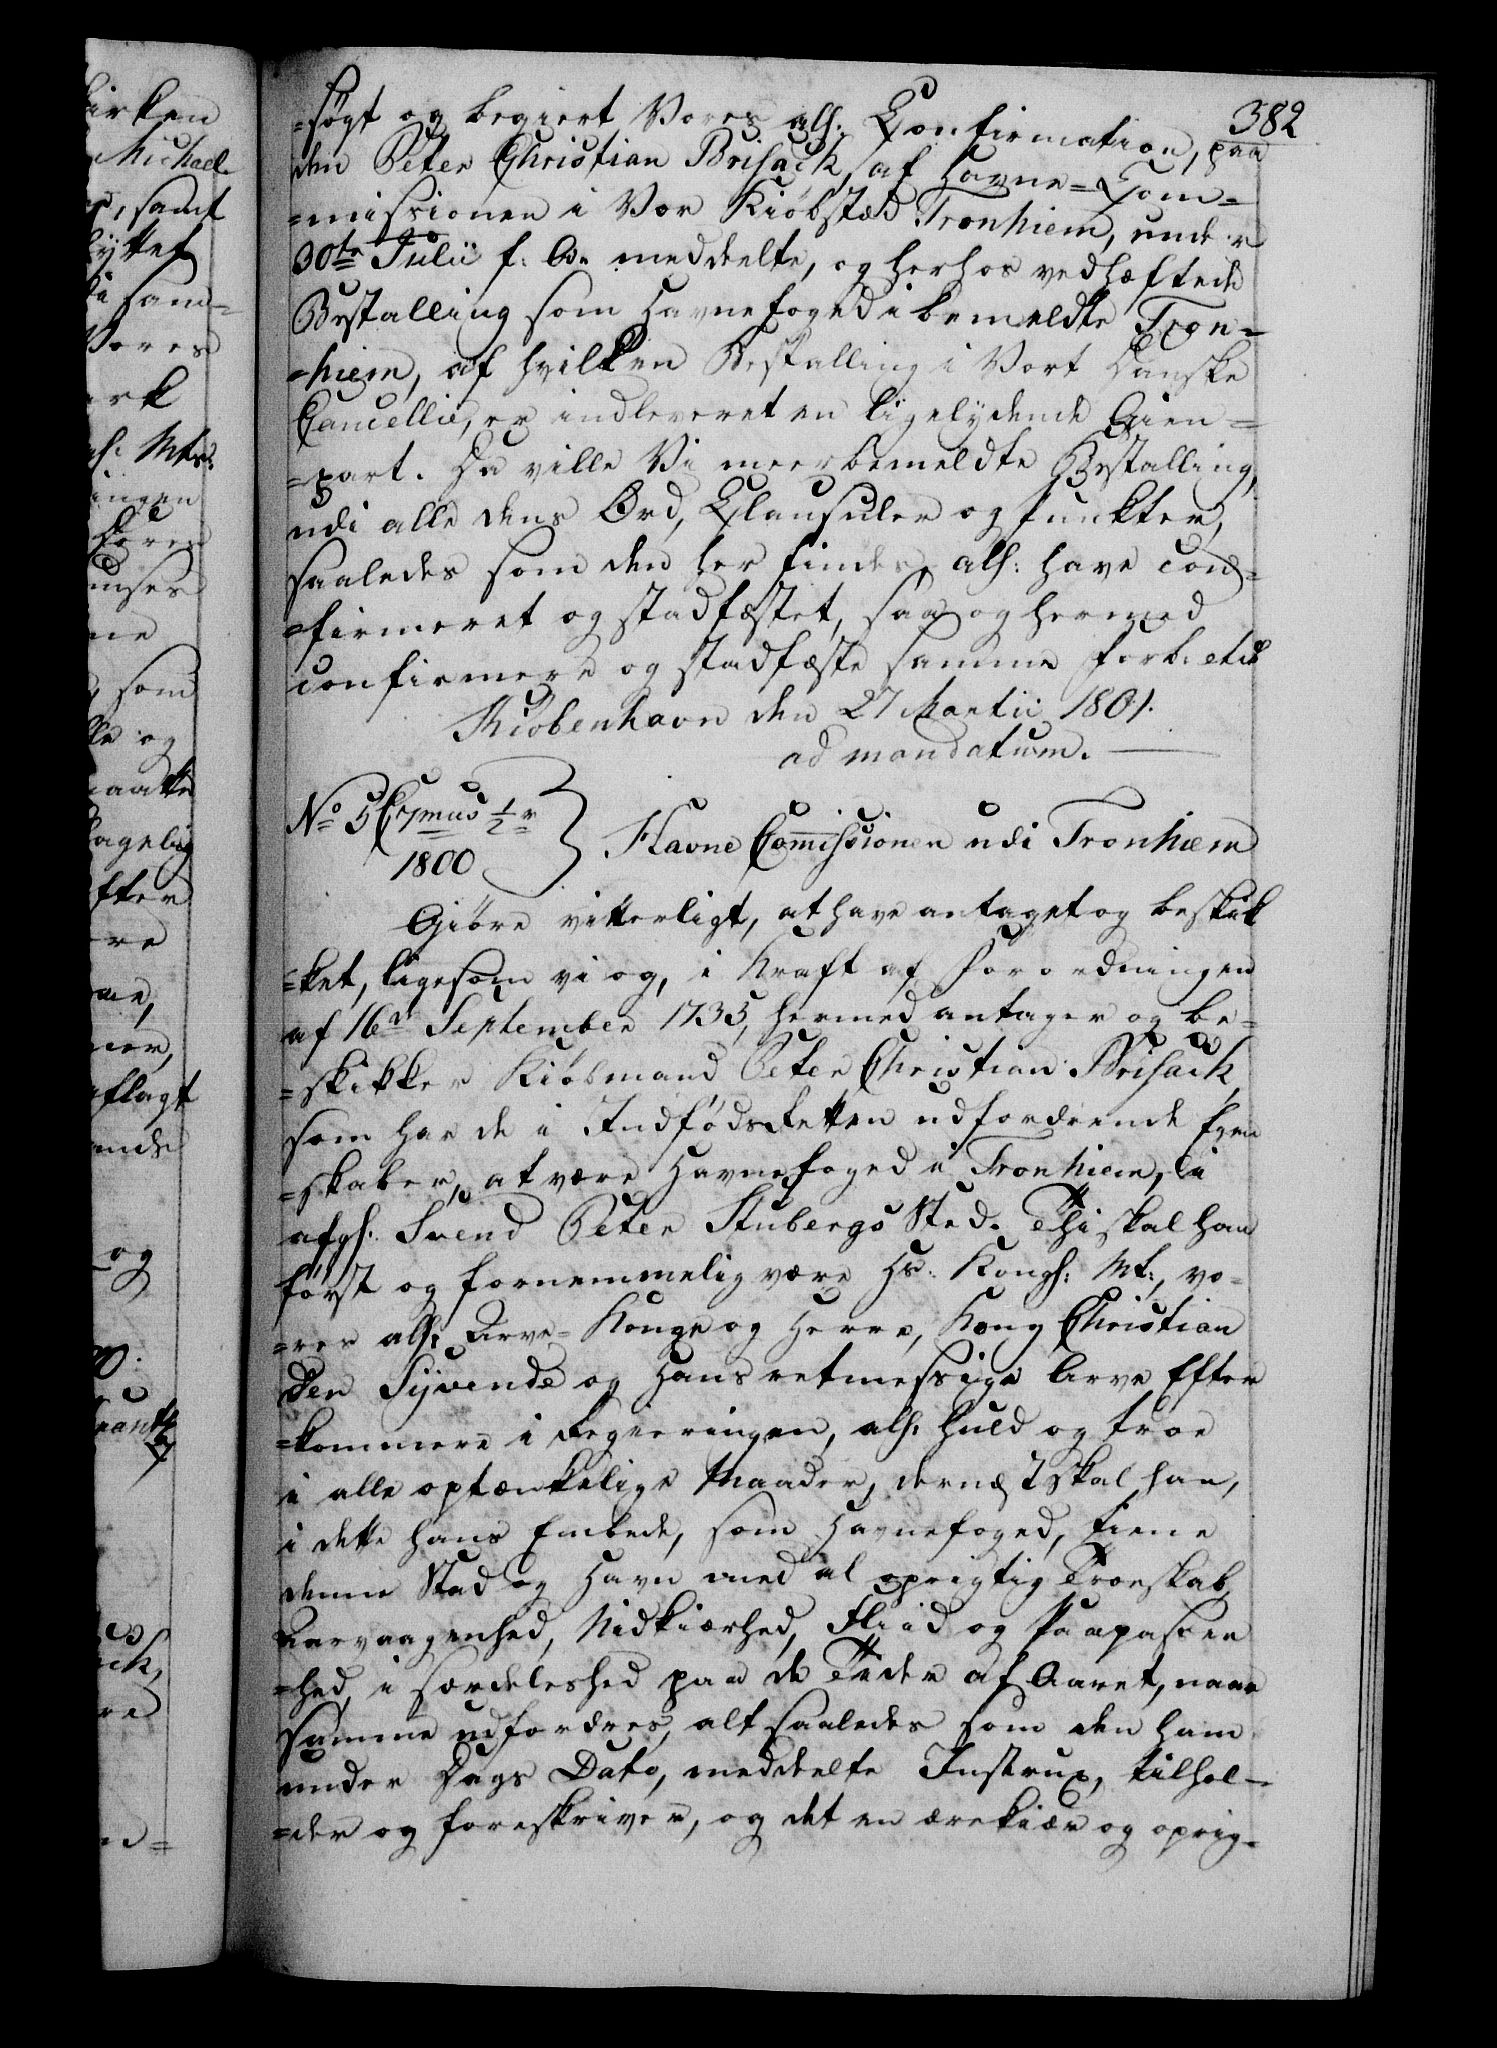 382
=søgt og begiert Vores alh: Confirmation, paa
den Peter Christian Brisack, af Havne=Com=
=missionen i Vor Kiøbstæd Tronhiem, under
30te Julii f: A. meddeelte, og herhos vedhæftede
Bestalling som Havnefoged i bemeldte Tron=
=hiem, af hvilken Bestalling i Vort Danske
Cancellie, er indleveret en ligelydende Gien=
=part. Da ville Vi meerbemeldte Bestalling,
udi alle dens Ord, Clausuler og Punkter,
saaledes som den her findes, alh: have con=
=firmeret og stadfæstet, saa og hermed
confirmere og stadfæste samme Forb: etc
Kiøbenhavn den 27 Martii 1801.
ad mandatum.
No 5 C 7mus 1/2 r
1800
Havne Commissionen udi Tronhiem
Giøre vitterligt, at have antaget og beskik
=ket, ligesom vi og, i Kraft af Forordningen
af 16de September 1735, hermed antager og be=
=skikker Kiøbmand Peter Christian Brisack,
som har de i Indfødsretten udfordrende Egen
=skaber, at være Havnefoged i Tronhiem, i
afgh: Svend Peter Stubergs Sted. Thi skal han
først og fornemmelig være Hs: Kongh: Mt:, vo=
=res alh: Arve=Konge og Herre, Kong Christian
den Syvende og Hans retmessige Arve Efter
=kommere i Regieringen, alh: huld og troe
i alle optænkelige Maader, dernæst skal han,
i dette hans Embede, som Havnefoged, tiene
denne Stad og Havn med al oprigtig Troeskab,
Aarvaagenhed, Nidkiærhed, Fliid og Paapassen
=hed, i særdeleshed paa de Tider af Aaret, naar
samme udfordres, alt saaledes som den ham
under Dags Dato, meddeelte Instrux, tilhol=
=der og foreskriver, og det en ærekiær og oprig=